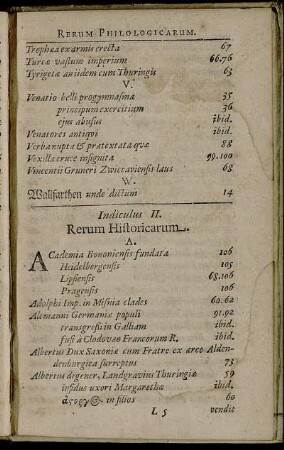 RERUM PHILOLOGICARUM.
Trophæa ex armis erecta 67
Turcæ vastum imperium 66.76
Tyrigetæ an iidem cum Thuringis 63
V.
Venatio belli progymnasma 35
principum exercitium 36
ejus abusus ibid.
Venatores antiqvi ibid.
Verbanupta & prætextata qvæ 88
Vexilla cruce insignita 99.100
Vincentii Gruneri Zwiccaviensis laus 68
W.
Wallfarthen unde dictum 14
Indiculus II.
Rerum Historicarum.
A.
ACademia Bononiensis fundata 106
Heidelbergensis 105
Lipsiensis 68.106
Pragensis 106
Adolphi Imp. in Misnia clades 60.62
Alemanni Germaniæ populi 91.92
transgressi in Galliam ibid.
fusi à Clodovæo Francorum R. ibid.
Albertus Dux Saxoniæ cum Fratre ex arce Alden-
denburgica surreptus 75
Albertus degener, Landgravius Thuringiæ 59
infidus uxori Margarethæ ibid.
ἄσοργ@ in filios 60
L 5 vendit